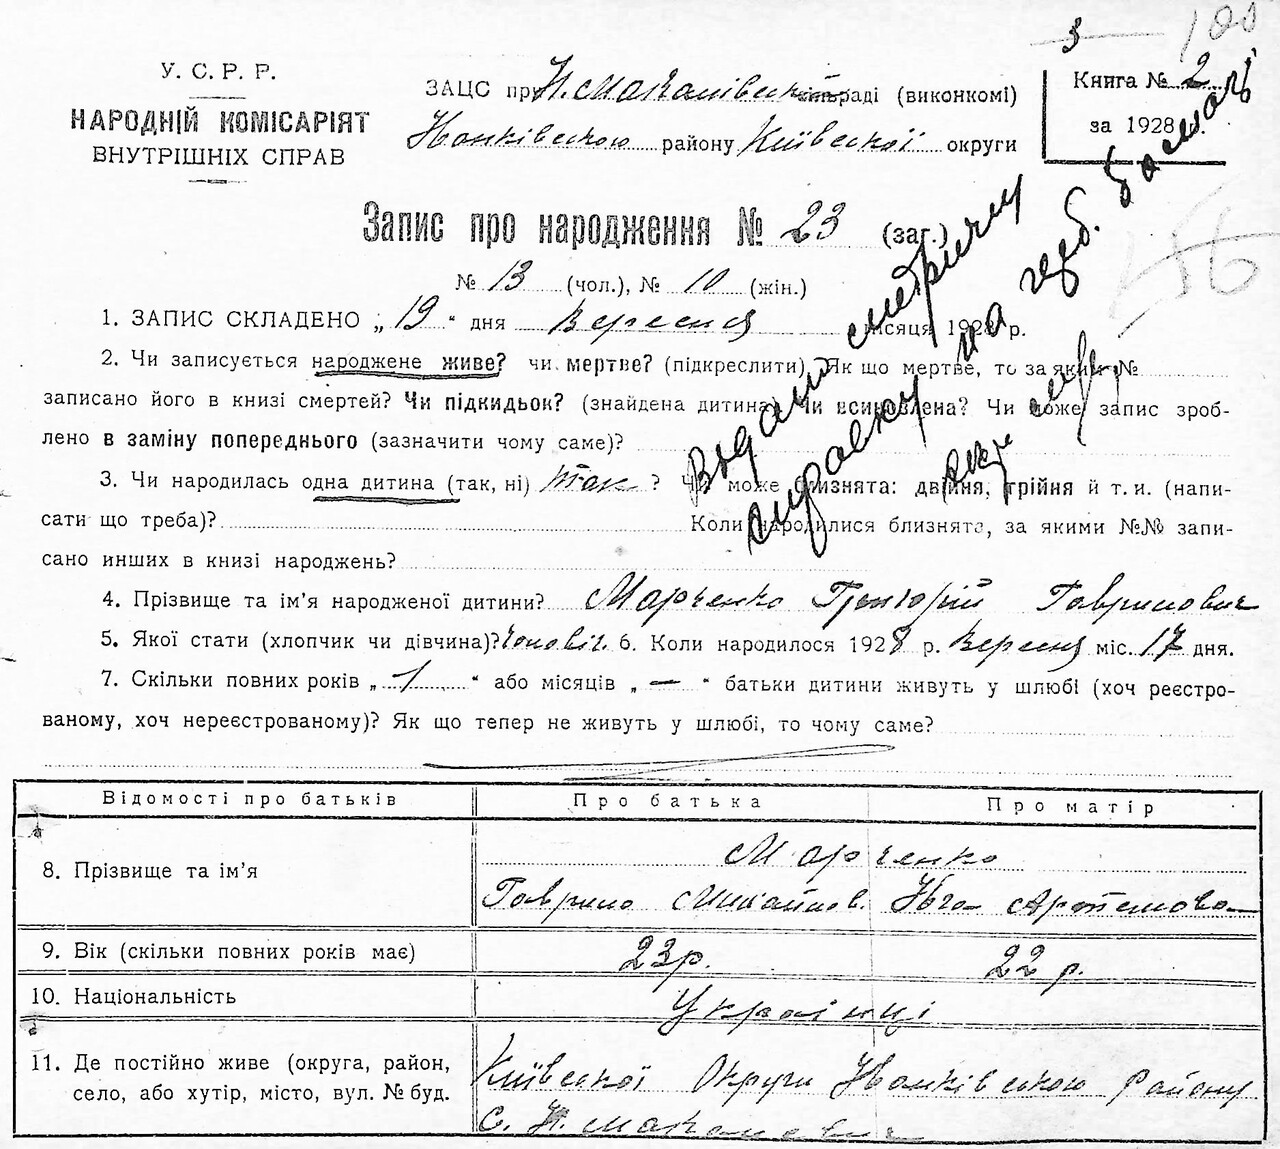 У. С. Р. Р.
НАРОДНІЙ КОМІСАРІЯТ
ВНУТРІШНІХ СПРАВ
ЗАЦС при Н. Макалівській сільраді (виконкомі)
Іванківського району Київської округи
Книга № 2
за 1928 р.
Запис про народження № 23 (заг.)
№ 13 (чол.), № 10 (жін.)
1. ЗАПИС СКЛАДЕНО „ 19 “ дня Вересня місяця 1928 р.
2. Чи записується народжене живе? чи мертве? (підкреслити). Як що мертве, то за яким №
записано його в книзі смертей? Чи підкидьок? (знайдена дитина) Чи всиновлена? Чи може запис зроб-
лено в заміну попереднього (зазначити чому саме)?
3. Чи народилась одна дитина (так, ні) так ? Чи може близнята: двійня, трійня й т. и. (напи-
сати що треба)? Коли народилися близнята, за якими №№ запи-
сано инших в книзі народжень?
4. Прізвище та ім’я народженої дитини? Марченко Григорій Гаврилович
5. Якої стати (хлопчик чи дівчина)? чоловіч. 6. Коли народилося 1928 р. Вересня міс. 17 дня.
7. Скільки повних років „ 1 “ або місяців „ — “ батьки дитини живуть у шлюбі (хоч реєстро-
ваному, хоч нереєстрованому)? Як що тепер не живуть у шлюбі, то чому саме?
Відомості про батьків Про батька Про матір
Марченко
8. Прізвище та ім’я
Гаврило Михайлов. Артемова
9. Вік (скільки повних років має) 23 р. 22 р.
10. Національність Українці
11. Де постійно живе (округа, район, Київської Округи Іванківського Району
село, або хутір, місто, вул. № буд. с. Н. Макалевичі